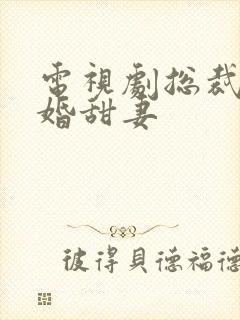 電視劇总裁
婚甜妻
彼得貝德福德